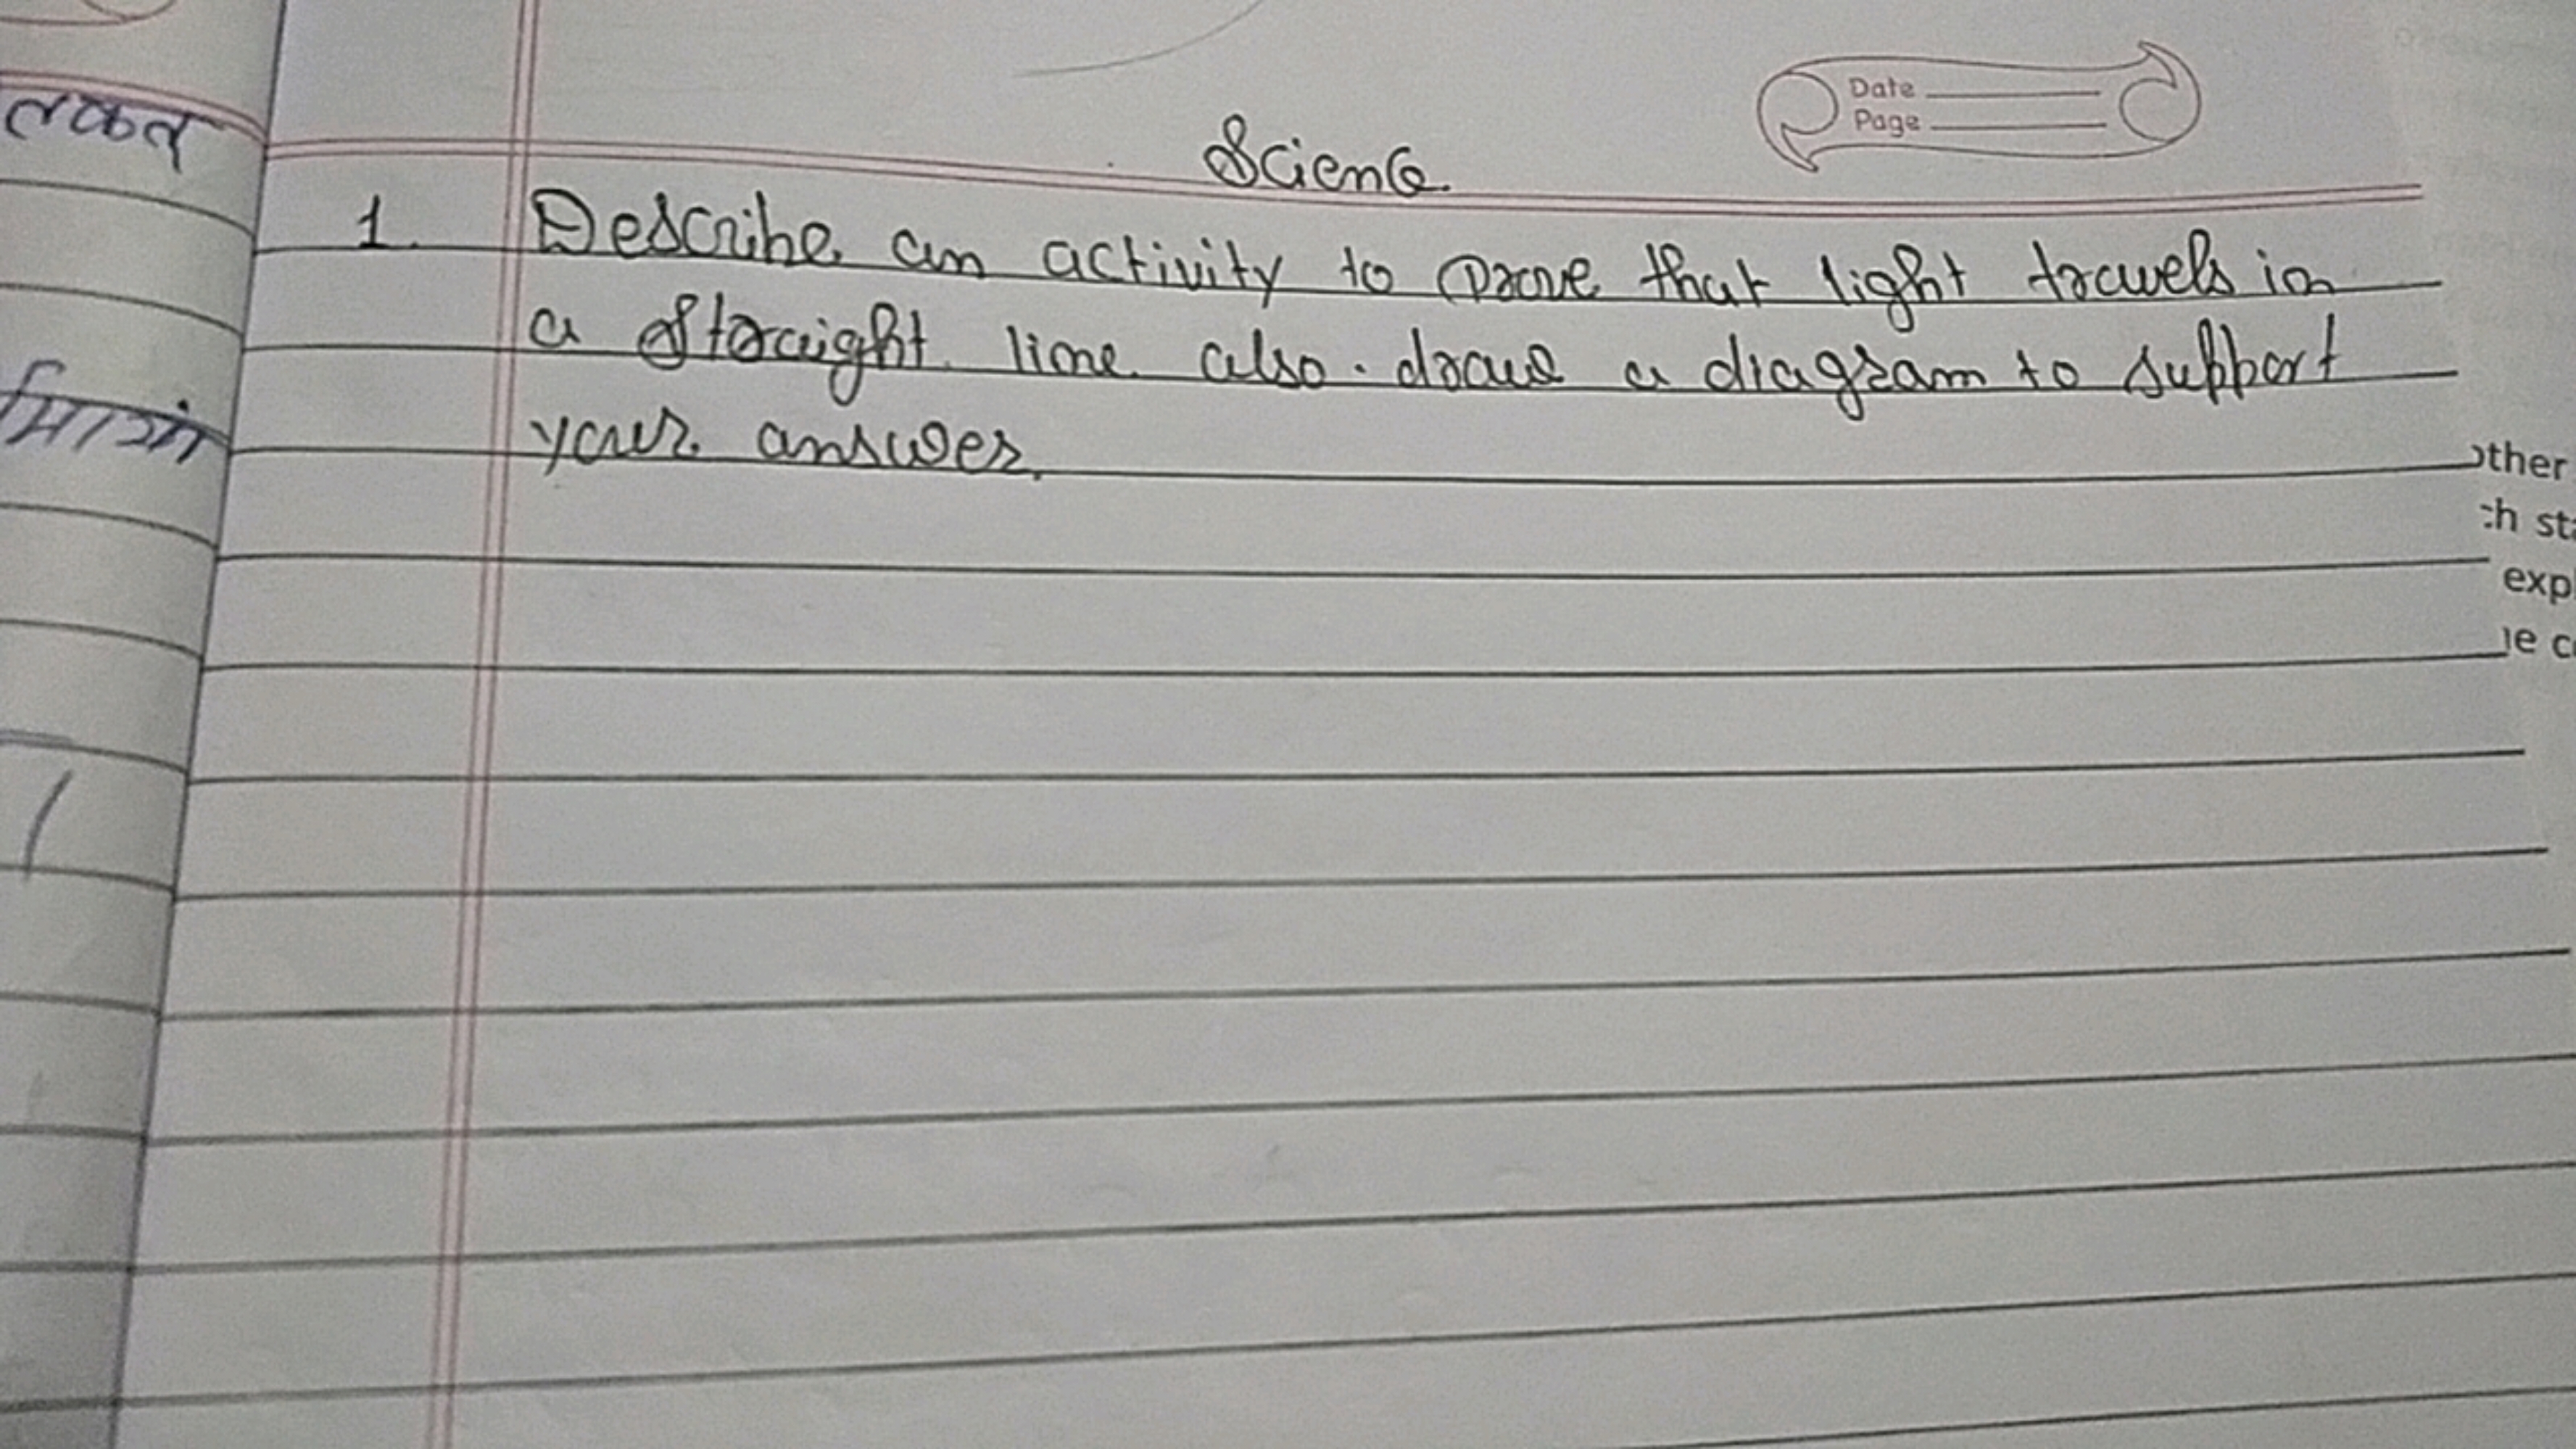 Date
Page
Science
1. Describe an activity to prove that light travels in
a straight line also. draw a diagram to support
your answer.
other
ch sta
expl